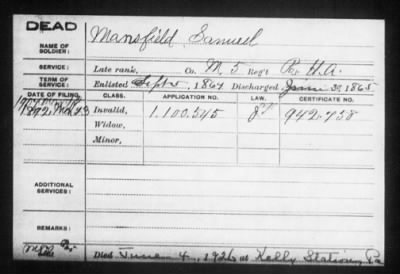 DEAD
NAME OF SOLDIER: Mansfield, Samuel
SERVICE: Late rank, Co. M, 5 Reg't Pa. H.A.
TERM OF SERVICE: Enlisted Sept 5, 1864 Discharged June 30, 1865
DATE OF FILING. CLASS. APPLICATION NO. LAW. CERTIFICATE NO.
1892, Invalid, 1.100.545 942.758
Widow,
Minor,
ADDITIONAL SERVICES:
REMARKS:
Died June 4, 1926 at Kelly Station, Pa